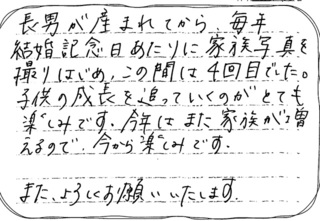 長男が産まれてから、毎年
結婚記念日あたりに家族写真を
撮りはじめ、この間は4回目でした。
子供の成長を追っていくのがとても
楽しみです。今年はまた家族が増
えるので、今から楽しみです。
また、よろしくお願いいたします。